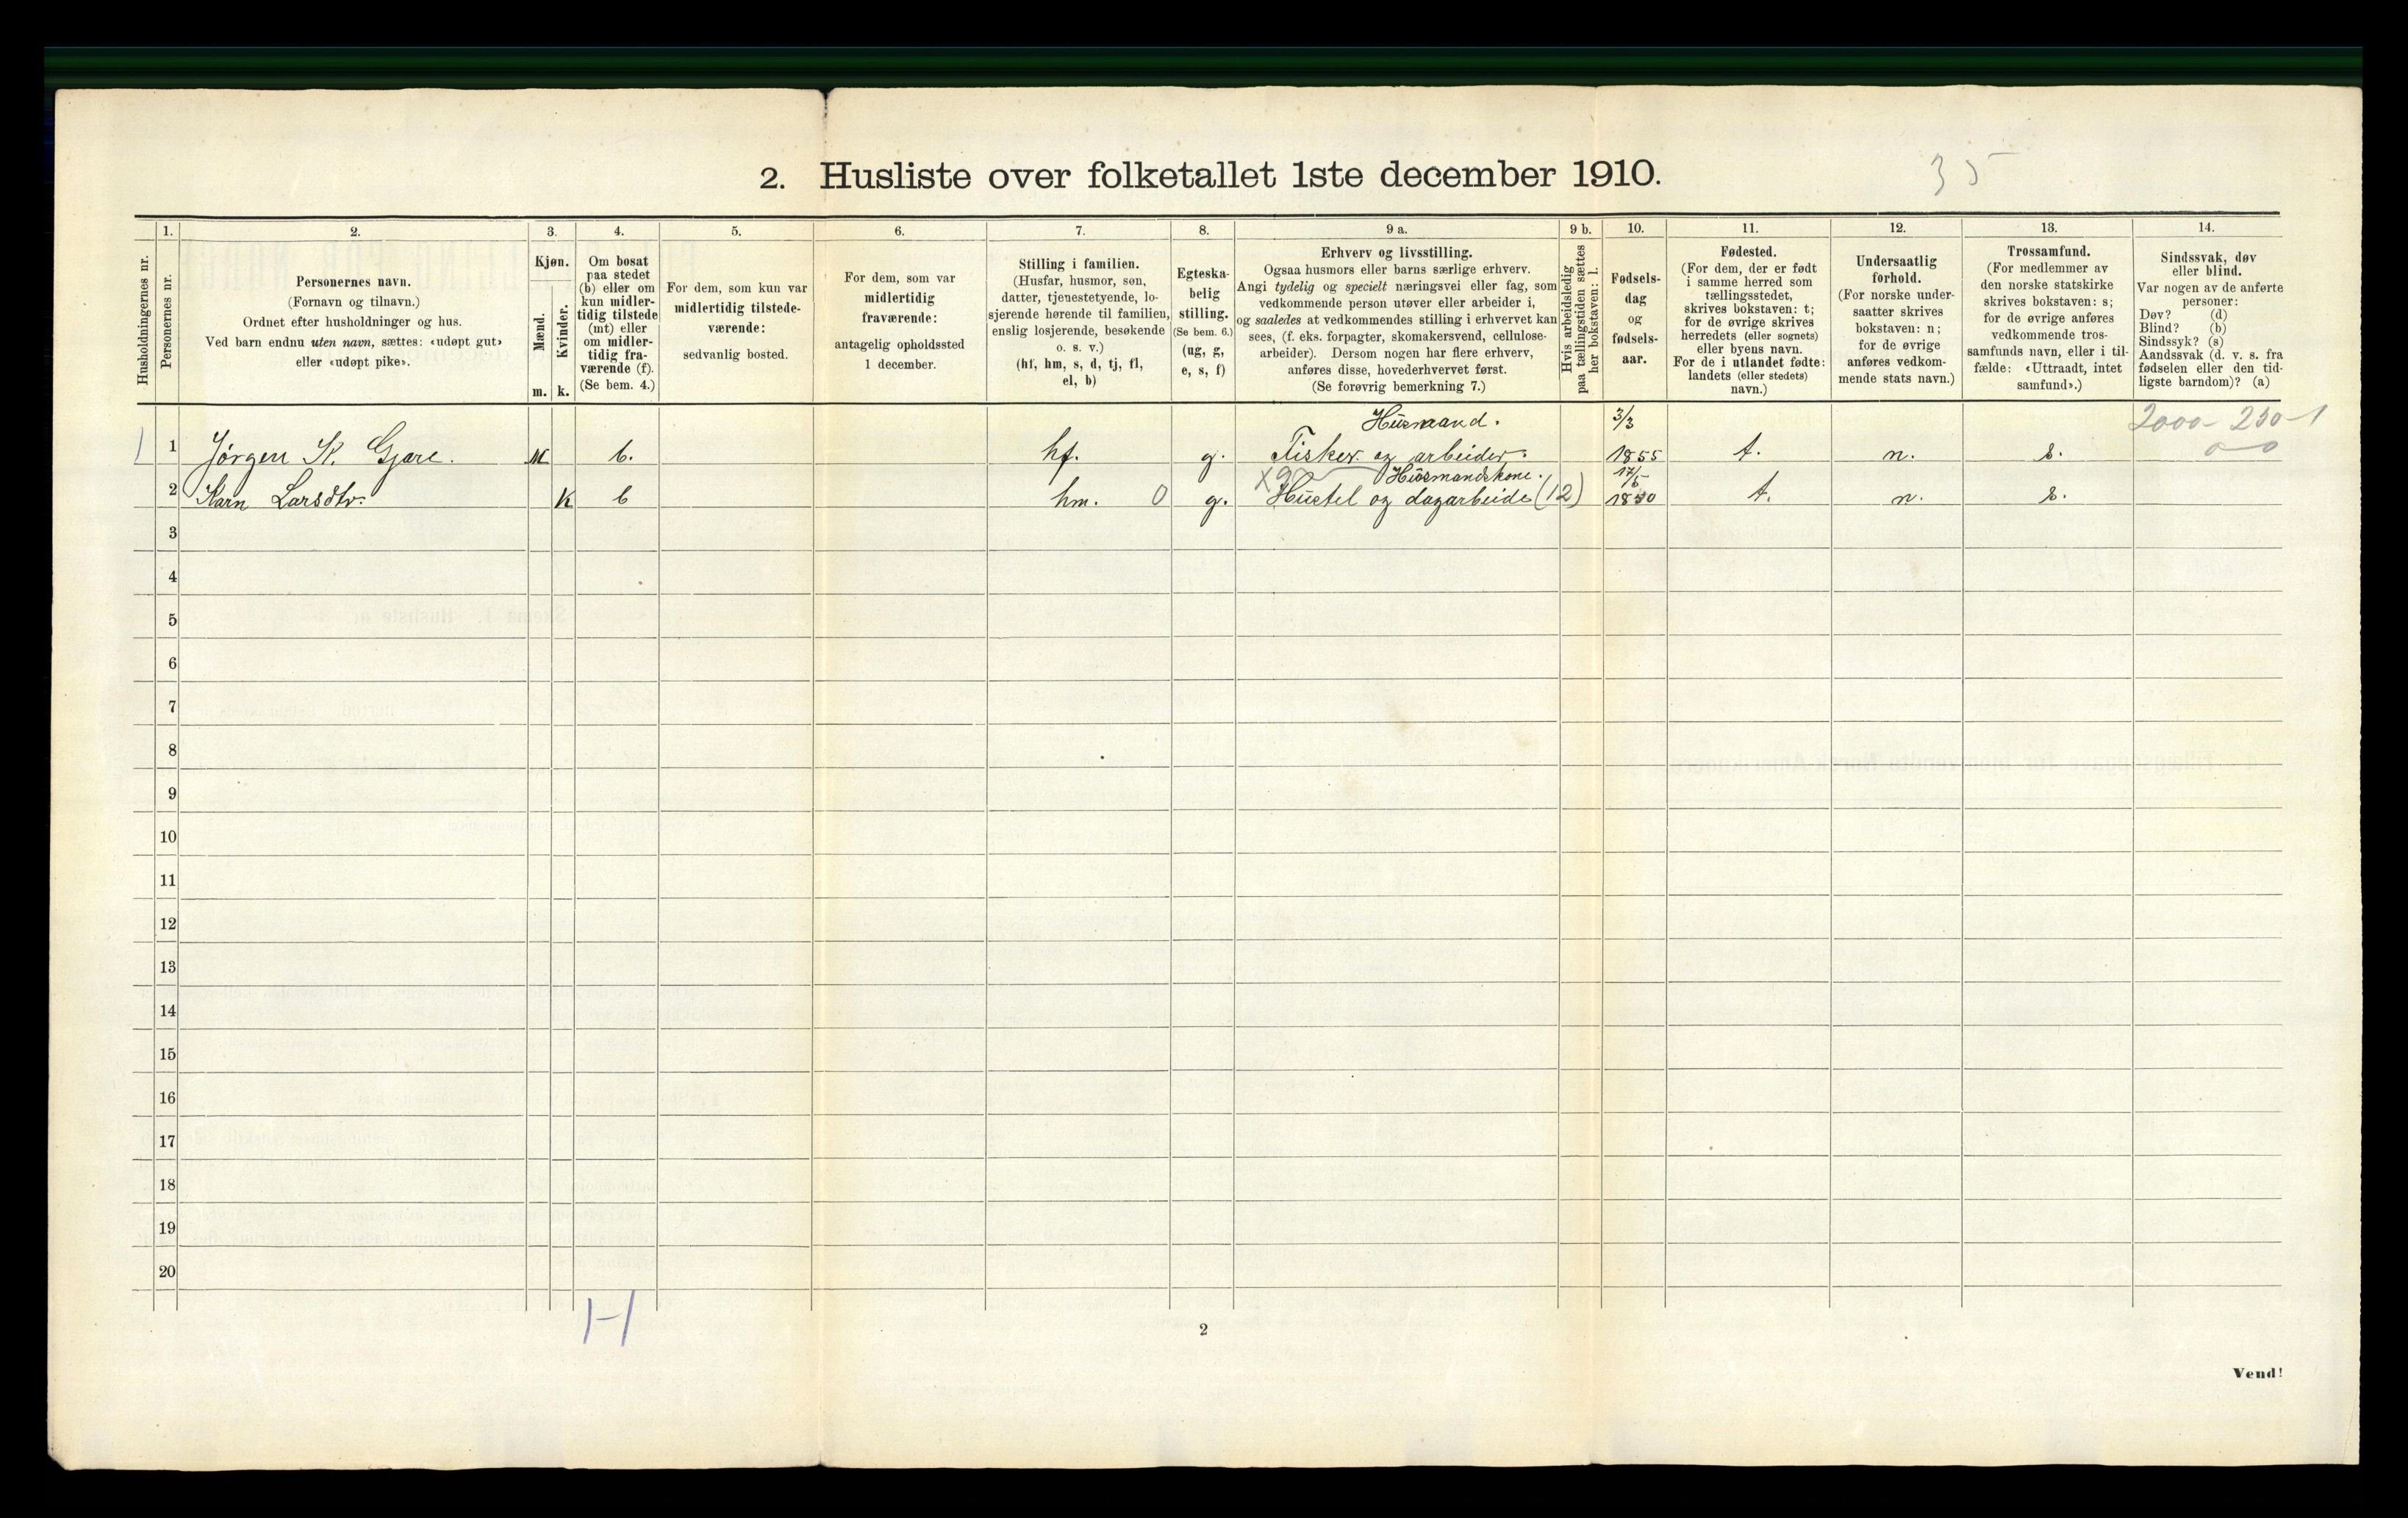 2. Husliste over folketallet 1ste december 1910.
35
Husholdningernes nr.
1.
Personernes nr.
2.
Personernes navn.
(Fornavn og tilnavn.)
Ordnet efter husholdninger og hus.
Ved barn endnu uten navn, sættes: «udøpt gut»
eller «udøpt pike».
3.
Kjøn.
Mænd.
Kvinder.
m. k.
4.
Om bosat
paa stedet
(b) eller om
kun midler-
tidig tilstede
(mt) eller
om midler-
tidig fra-
værende (f).
(Se bem. 4.)
5.
For dem, som kun var
midlertidig tilstede-
værende:
sedvanlig bosted.
6.
For dem, som var
midlertidig
fraværende:
antagelig opholdssted
1 december.
7.
Stilling i familien.
(Husfar, husmor, søn,
datter, tjenestetyende, lo-
sjerende hørende til familien,
enslig losjerende, besøkende
o. s. v.)
(hf, hm, s, d, tj, fl,
el, b)
8.
Egteska-
belig
stilling.
(Se bem. 6.)
(ug, g,
e, s, f)
9 a.
Erhverv og livsstilling.
Ogsaa husmors eller barns særlige erhverv.
Angi tydelig og specielt næringsvei eller fag, som
vedkommende person utøver eller arbeider i,
og saaledes at vedkommendes stilling i erhvervet kan
sees, (f. eks. forpagter, skomakersvend, cellulose-
arbeider). Dersom nogen har flere erhverv,
anføres disse, hovederhvervet først.
(Se forøvrig bemerkning 7.)
9 b.
Hvis arbeidsledig
paa tællingstiden sættes
her bokstaven: l.
10.
Fødsels-
dag
og
fødsels-
aar.
11.
Fødested.
(For dem, der er født
i samme herred som
tællingsstedet,
skrives bokstaven: t;
for de øvrige skrives
herredets (eller sognets)
eller byens navn.
For de i utlandet fødte:
landets (eller stedets)
navn.)
12.
Undersaatlig
forhold.
(For norske under-
saatter skrives
bokstaven: n;
for de øvrige
anføres vedkom-
mende stats navn.)
13.
Trossamfund.
(For medlemmer av
den norske statskirke
skrives bokstaven: s;
for de øvrige anføres
vedkommende tros-
samfunds navn, eller i til-
fælde: «Uttraadt, intet
samfund».)
14.
Sindssvak, døv
eller blind.
Var nogen av de anførte
personer:
Døv? (d)
Blind? (b)
Sindssyk? (s)
Aandssvak (d. v. s. fra
fødselen eller den tid-
ligste barndom)? (a)
Husmand. 3/3 2000 - 250 - 1
1 1 Jørgen K. Gjære. M b. hf. g. Fisker og arbeider. 1855 t. n. s. 0-0
Husmandskone. 17/5
2 Karn Larsdtr. K b hm. 0 g. Hustel og dagarbeide (12) 1850 t. n. s.
3
4
5
6
7
8
9
10
11
12
13
14
15
16
17
18
19
20
1-1
2
Vend!